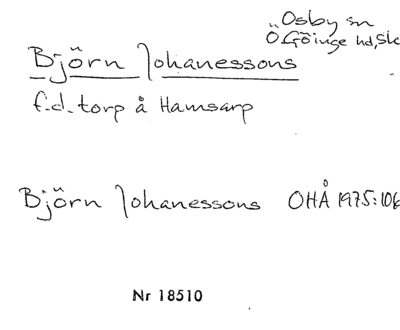 Osby sn
Ö Göinge hd, Sk
Björn Johanessons
f.d. torp å Hamsarp
Björn Johanessons OHÅ 1975:106
Nr 18510